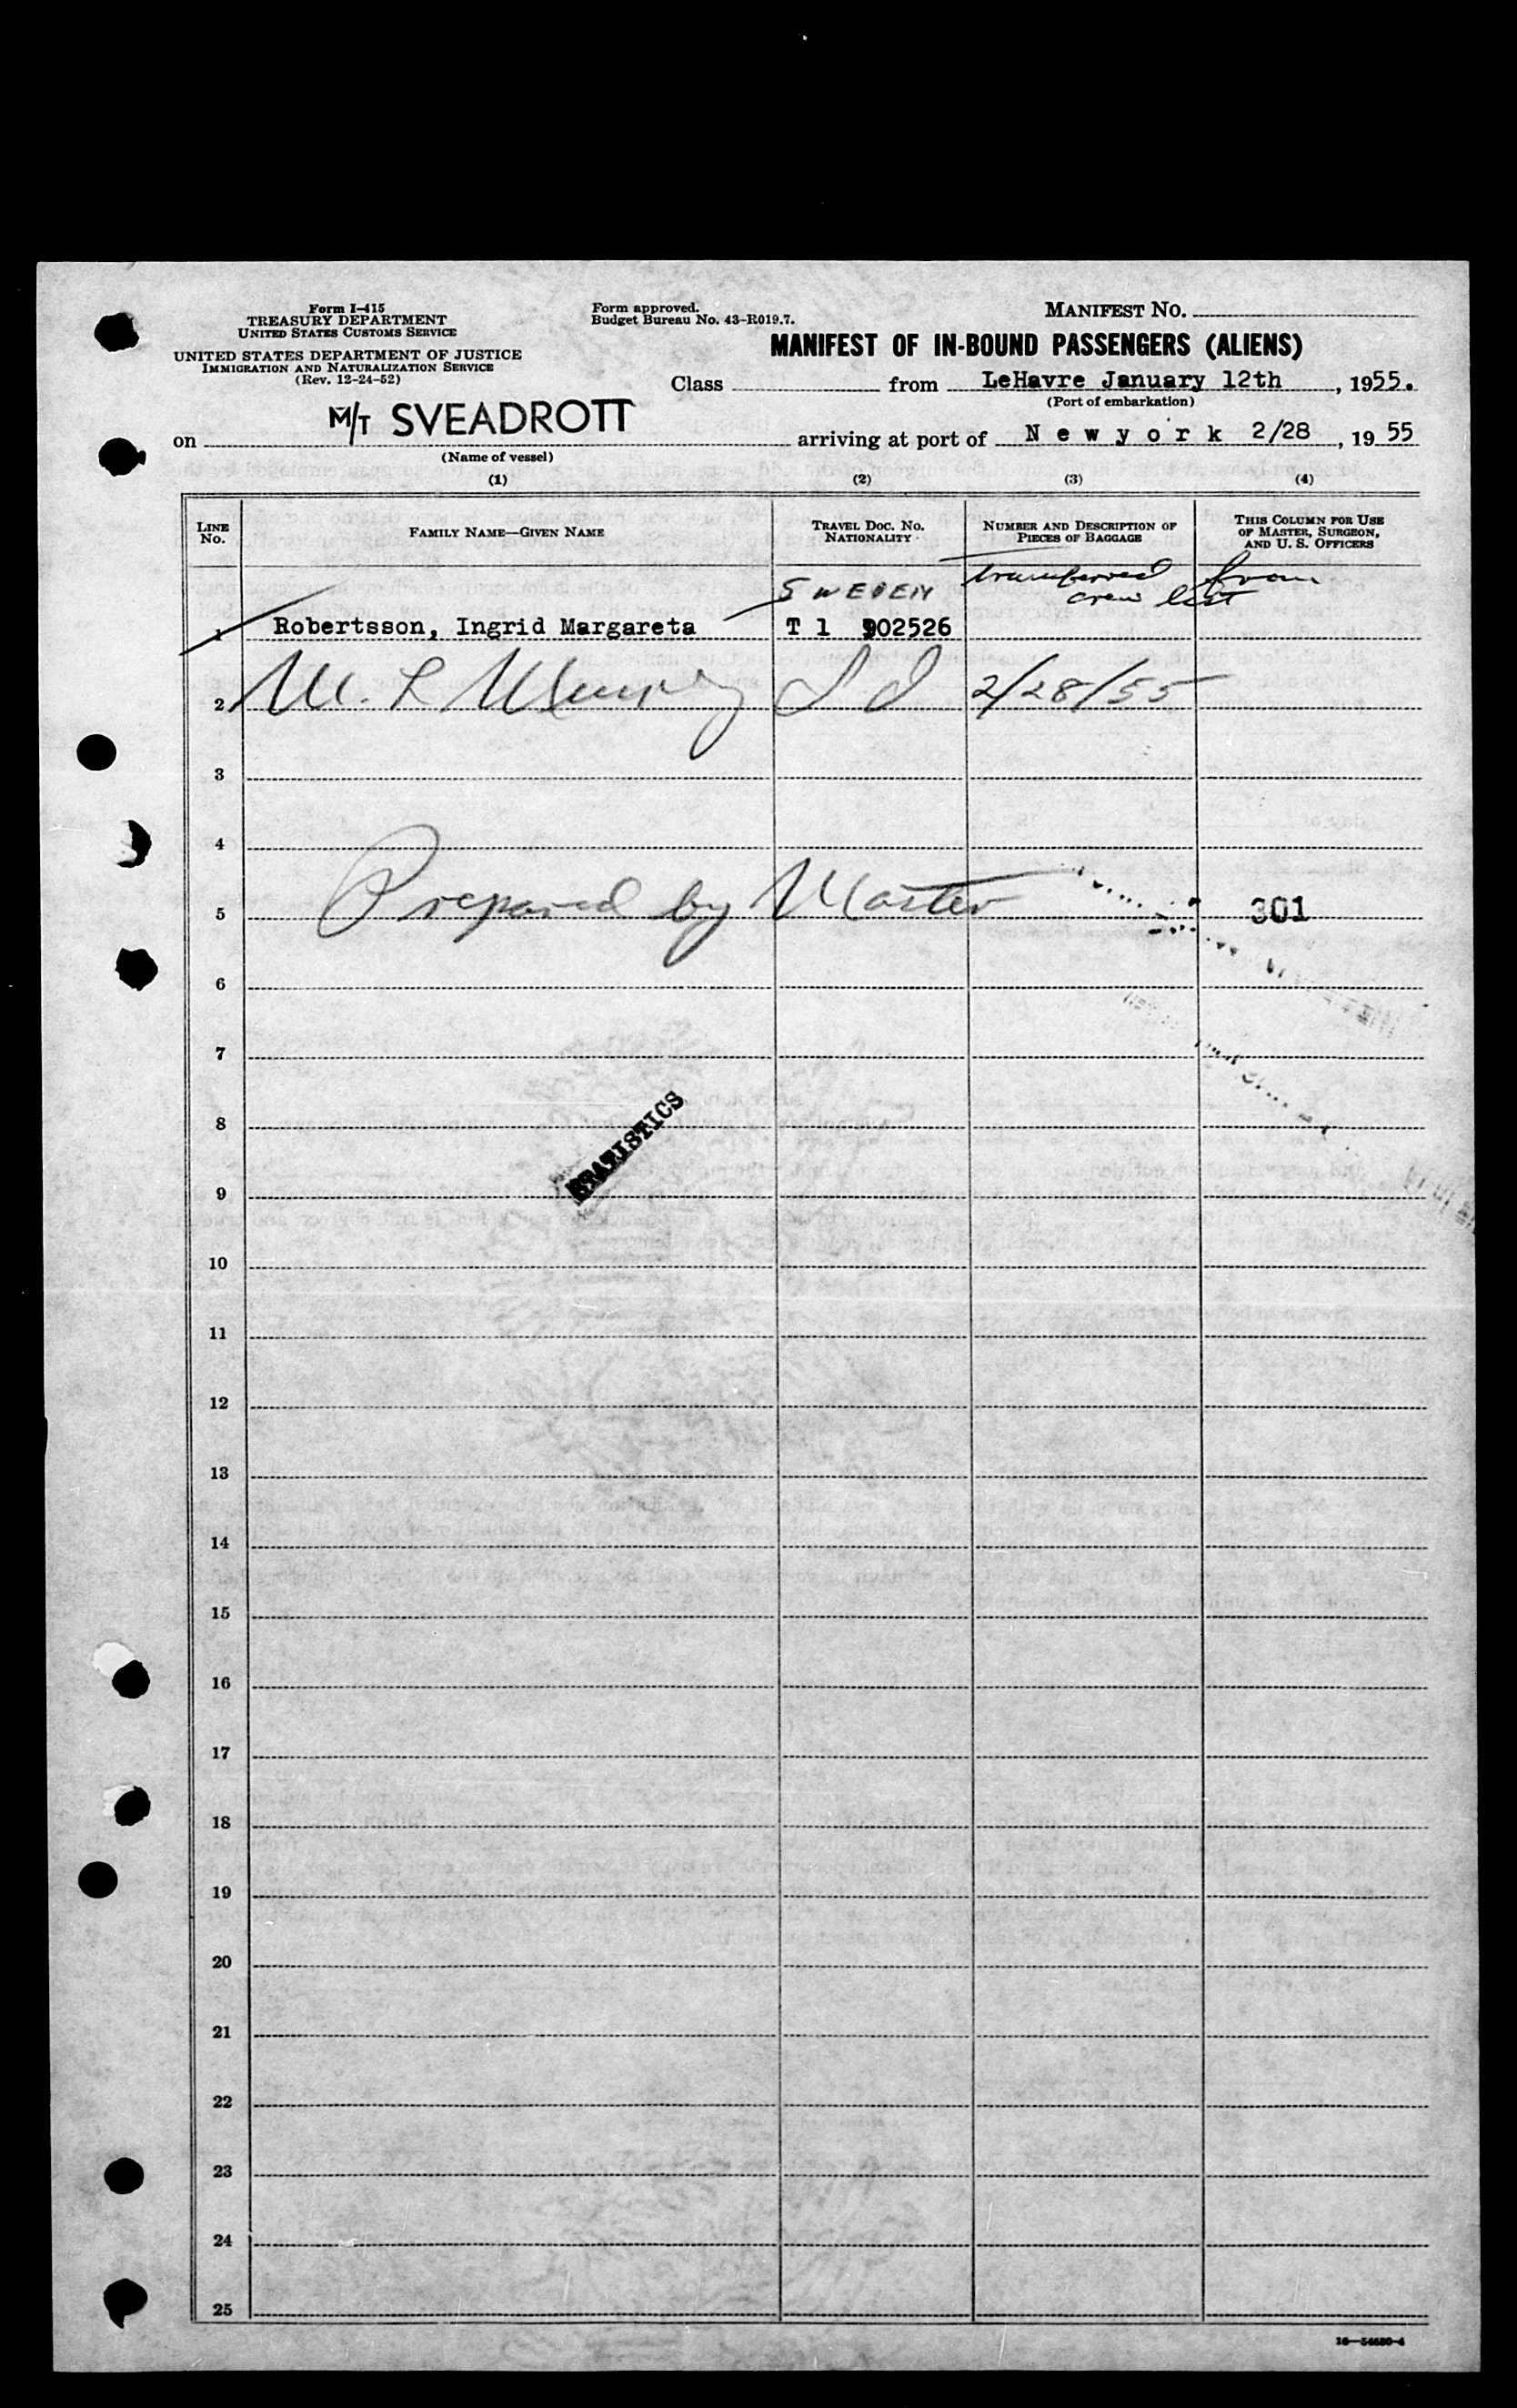 Form I-415
TREASURY DEPARTMENT
UNITED STATES CUSTOMS SERVICE
UNITED STATES DEPARTMENT OF JUSTICE
IMMIGRATION AND NATURALIZATION SERVICE
(Rev. 12-24-52)
Form approved.
Budget Bureau No. 43-R019.7.
MANIFEST NO.
MANIFEST OF IN-BOUND PASSENGERS (ALIENS)
Class from LeHavre January 12th, 1955.
(Port of embarkation)
on M/T SVEADROTT arriving at port of Newyork 2/28, 1955
(Name of vessel)
(1) (2) (3) (4)
LINE NO. FAMILY NAME—GIVEN NAME TRAVEL DOC. NO. NATIONALITY NUMBER AND DESCRIPTION OF PIECES OF BAGGAGE THIS COLUMN FOR USE OF MASTER, SURGEON, AND U. S. OFFICERS
SWEDEN transferred from
crew list
1 Robertsson, Ingrid Margareta T 1 902526
2 M. L Murphy 2/28/55
3
4
5 Prepared by Master 301
6
7
8
STATISTICS
9
10
11
12
13
14
15
16
17
18
19
20
21
22
23
24
25